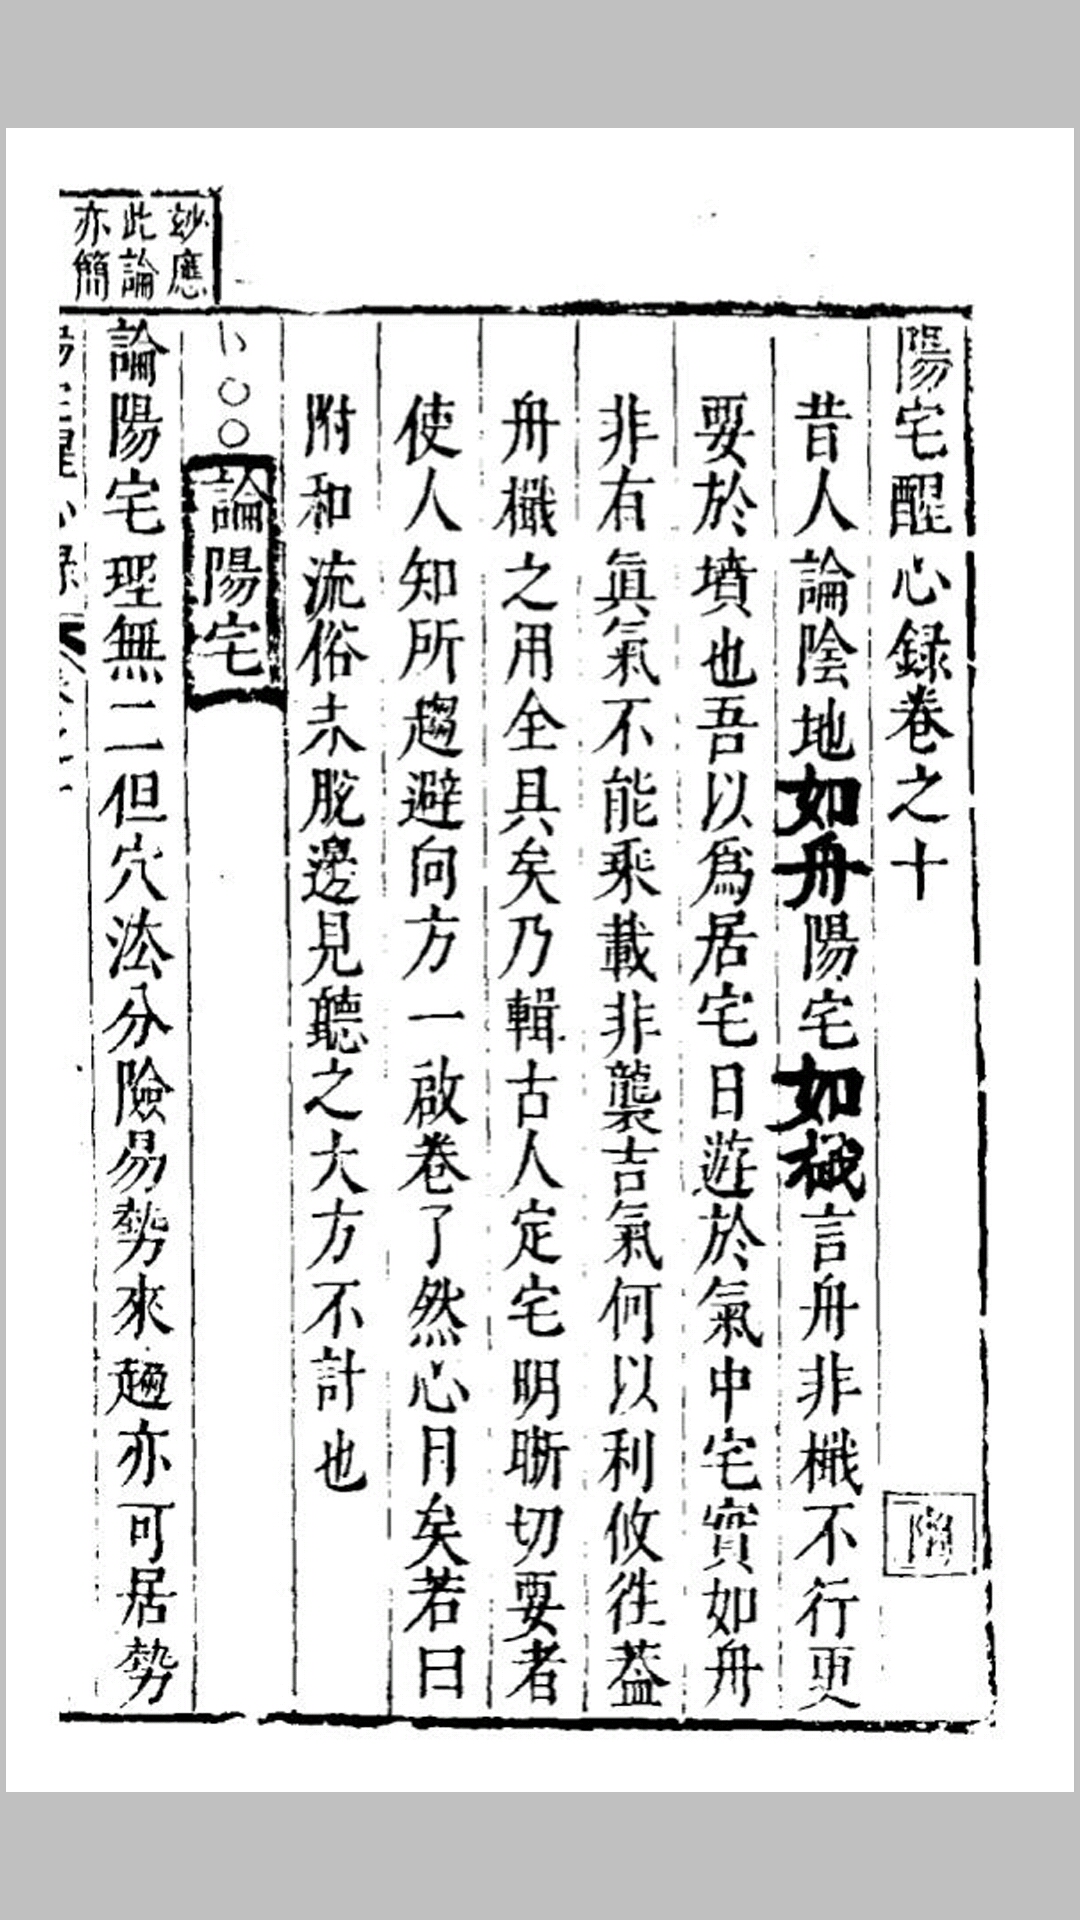 陽宅醒心録卷之十
昔人論陰地如舟陽宅如檝言舟非檝不行更
要於墳也吾以爲居宅日遊於氣中宅實如舟
非有眞氣不能乘載非襲吉氣何以利攸徃葢
舟檝之用全具矣乃輯古人定宅明晣切要者
使人知所趨避向方一啟卷了然心目矣若曰
附和流俗未脫邊見聽之大方不計也
論陽宅
玅應
此論
亦簡
論陽宅理無二但穴法分險易勢來趨亦可居勢